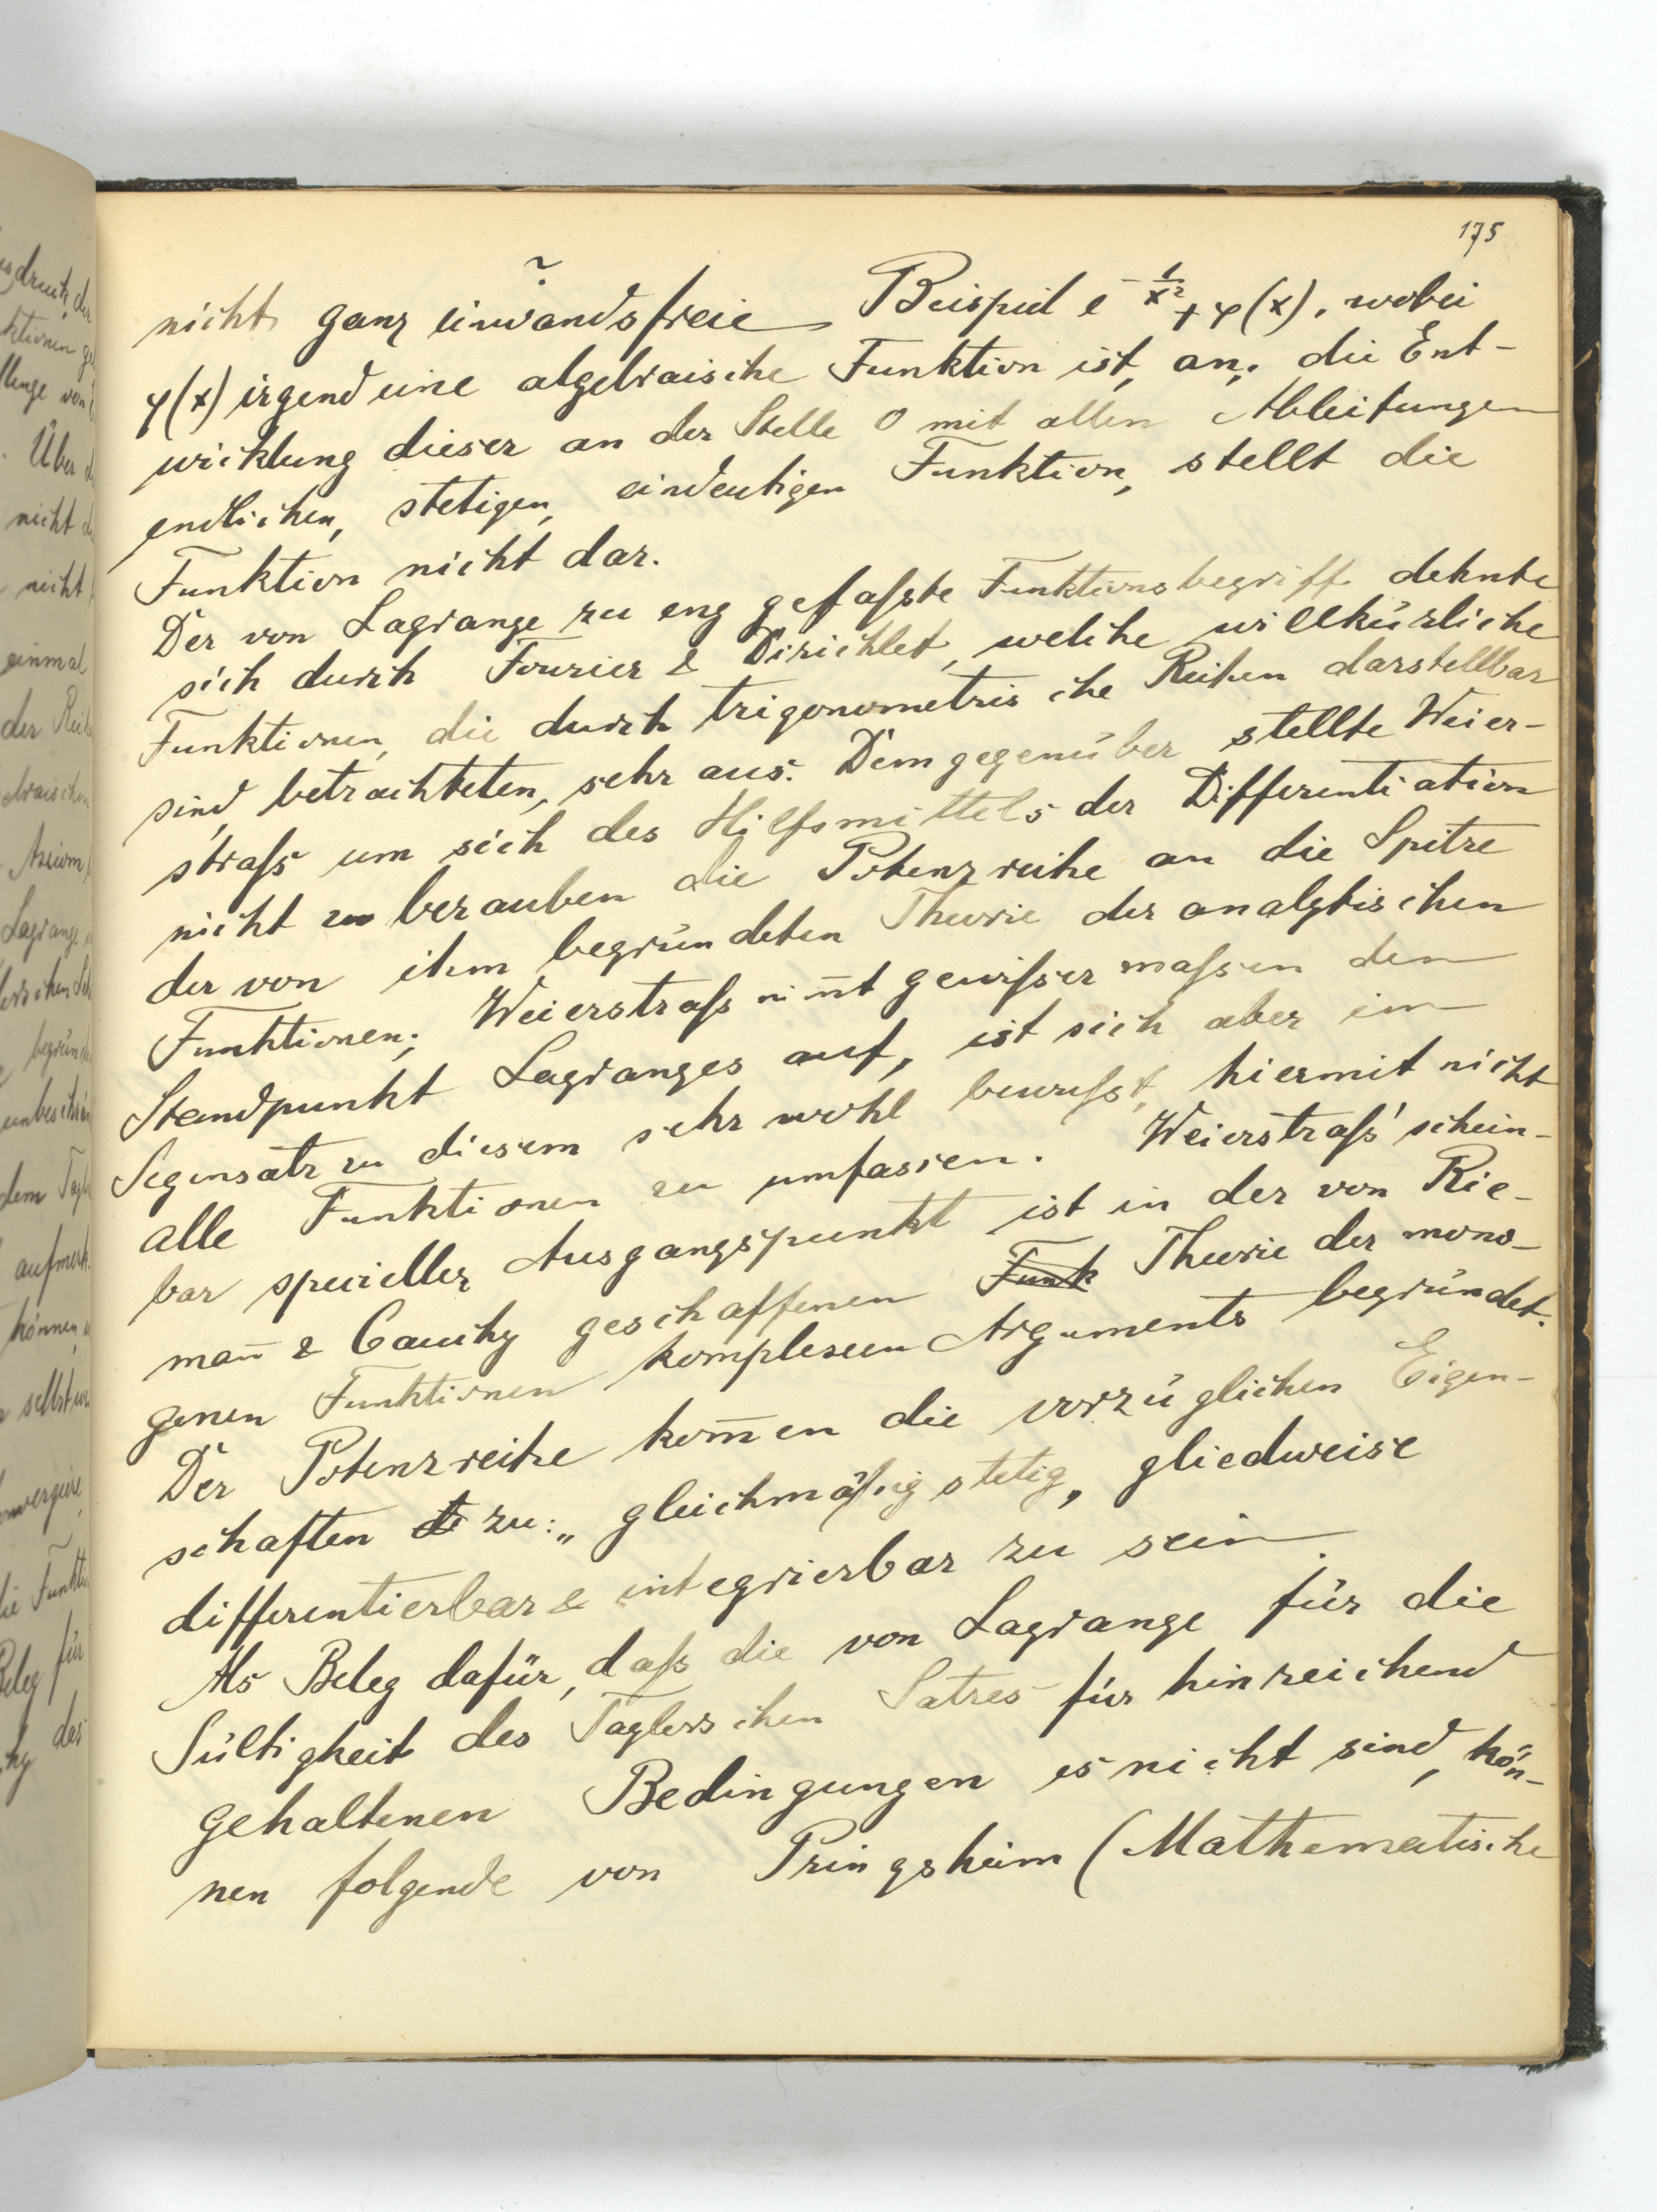 175
nicht ganz einwandsfreie Beispiel e^{-1/x²} + φ(x), wobei
φ(x) irgend eine algebraische Funktion ist, an; die Ent-
wicklung dieser an der Stelle 0 mit allen Ableitungen
endlichen, stetigen, eindeutigen Funktion, stellt die
Funktion nicht dar.
Der von Lagrange zu eng gefaßte Funktionsbegriff dehnte
sich durch Fourier & Dirichlet, welche willkürliche
Funktionen, die durch trigonometrische Reihen darstellbar
sind, betrachteten, sehr aus. Demgegenüber stellte Weier-
straß um sich des Hilfsmittels der Differentiation
nicht zu berauben die Potenzreihe an die Spitze
der von ihm begründeten Theorie der analytischen
Funktionen; Weierstraß nim̄t gewißermaßen den
Standpunkt Lagranges auf, ist sich aber im
Gegensatz zu diesem sehr wohl bewußt, hiermit nicht
alle Funktionen zu umfassen. Weierstraß' schein-
bar specieller Ausgangspunkt ist in der von Rie-
man̄ & Cauchy geschaffenen Funk Theorie der mono-
genen Funktionen komplexen Arguments begründet.
Der Potenzreihe kom̄en die vorzüglichen Eigen-
schaften zu: „gleichmäßig stetig, gliedweise
differentierbar & integrierbar zu sein.
Als Beleg dafür, daß die von Lagrange für die
Gültigkeit des Taylorschen Satzes für hinreichend
gehaltenen Bedingungen es nicht sind, kön-
nen folgende von Pringsheim (Mathematische